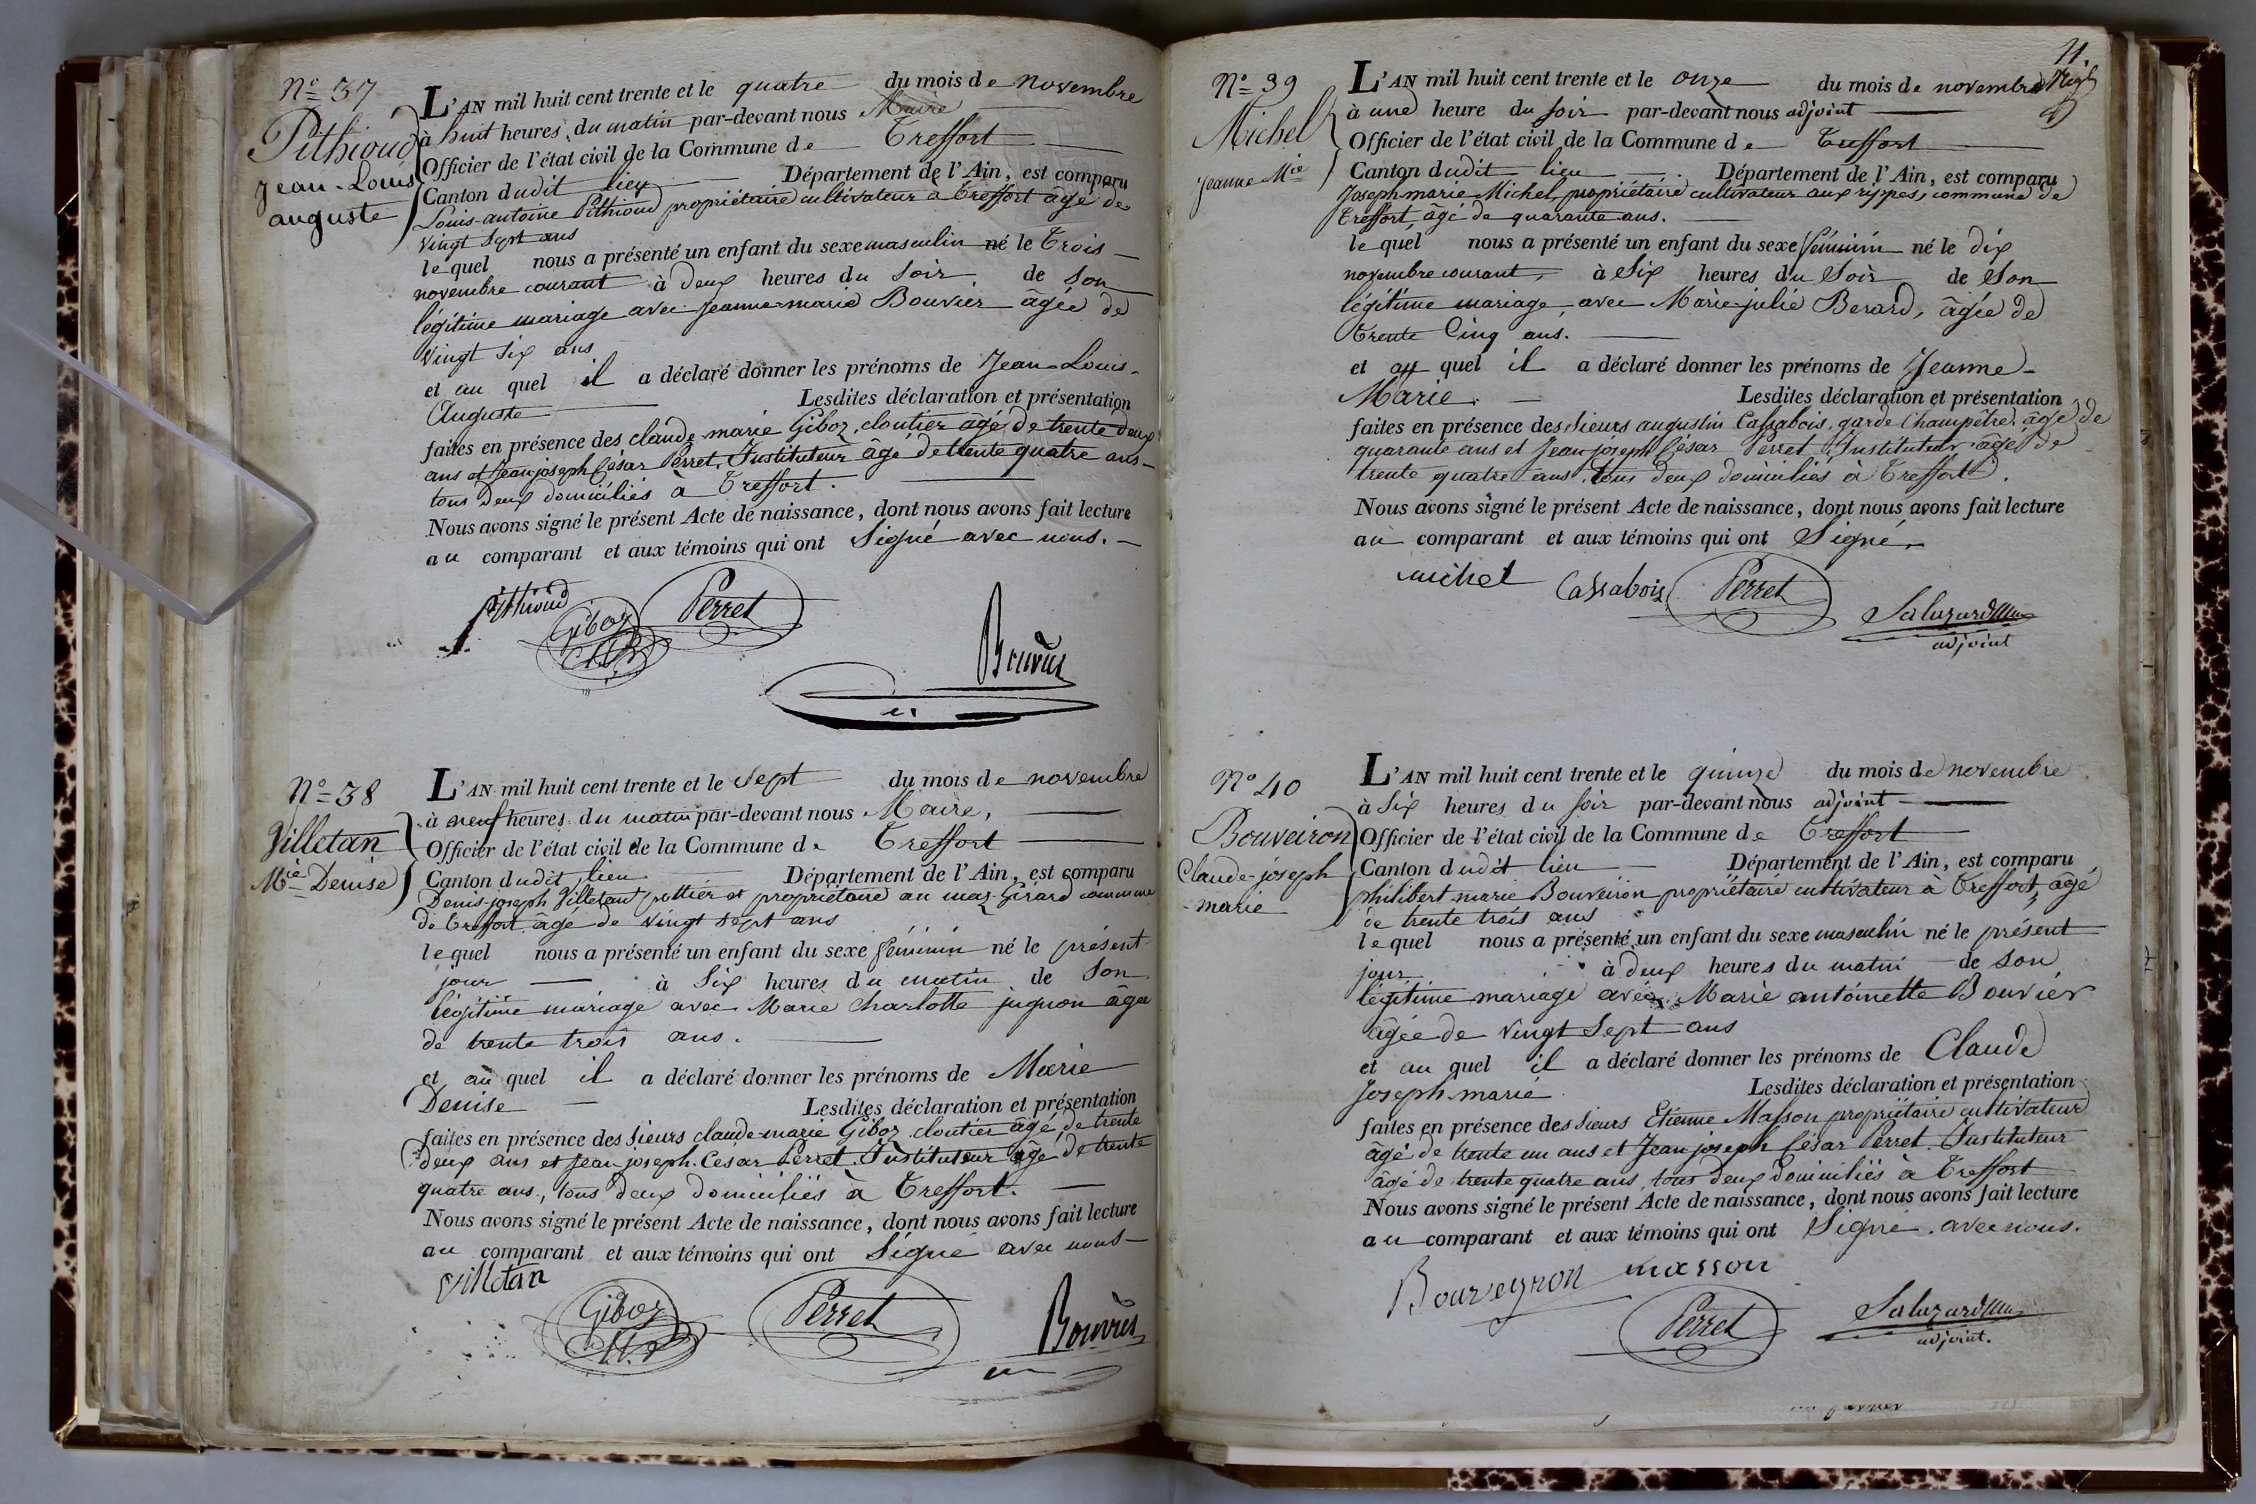 N° 37
Pithioud
Jean-Louis
auguste
L'AN mil huit cent trente et le quatre du mois de novembre
à huit heures du matin par-devant nous Maire
Officier de l'état civil de la Commune de Treffort
Canton dudit lieu Département de l'Ain, est comparu
Louis-antoine Pithioud propriétaire cultivateur à Treffort âgé de
vingt sept ans
lequel nous a présenté un enfant du sexe masculin né le trois
novembre courant à deux heures du soir de son
légitime mariage avec Jeanne-marie Bouvier âgée de
vingt six ans
et au quel il a déclaré donner les prénoms de Jean-Louis-
Auguste Lesdites déclaration et présentation
faites en présence des claude-marie Giboz, cloutier âgé de trente deux
ans et Jean joseph César Perret, Instituteur âgé de trente quatre ans
tous deux domiciliés à Treffort.
Nous avons signé le présent Acte de naissance, dont nous avons fait lecture
au comparant et aux témoins qui ont Signé avec nous.
Pithioud
Giboz
Perret
Bouvier
N° 38
Villetan
Mie Denise
L'AN mil huit cent trente et le sept du mois de novembre
à neuf heures du matin par-devant nous Maire,
Officier de l'état civil de la Commune de Treffort
Canton dudit lieu Département de l'Ain, est comparu
Denis-joseph Villetan pottier et propriétaire au mas Girard commune
de Treffort âgé de vingt sept ans
lequel nous a présenté un enfant du sexe féminin né le présent
jour à six heures du matin de son
légitime mariage avec Marie Charlotte jugnon âgée
de trente trois ans.
et au quel il a déclaré donner les prénoms de Marie
Denise Lesdites déclaration et présentation
faites en présence des sieurs claude-marie Giboz cloutier âgé de trente
deux ans et Jean joseph César Perret Instituteur âgé de trente
quatre ans, tous deux domiciliés à Treffort.
Nous avons signé le présent Acte de naissance, dont nous avons fait lecture
au comparant et aux témoins qui ont Signé avec nous
Villetan
Giboz
Perret
Bouvier
11.
N° 39
Michel
Jeanne Mie
L'AN mil huit cent trente et le onze du mois de novembre
à une heure du soir par-devant nous adjoint
Officier de l'état civil de la Commune de Treffort
Canton dudit lieu Département de l'Ain, est comparu
Joseph-marie Michel, propriétaire cultivateur aux rippes, commune de
Treffort âgé de quarante ans.
lequel nous a présenté un enfant du sexe féminin né le dix
novembre courant à six heures du soir de son
légitime mariage avec Marie-julie Berard, âgée de
trente cinq ans.
et au quel il a déclaré donner les prénoms de Jeanne-
Marie. Lesdites déclaration et présentation
faites en présence des sieurs augustin Cassabois, garde Champêtre âgé de
quarante ans et Jean joseph César Perret Instituteur âgé de
trente quatre ans, tous deux domiciliés à Treffort.
Nous avons signé le présent Acte de naissance, dont nous avons fait lecture
au comparant et aux témoins qui ont Signé.
michel
Cassabois
Perret
adjoint
N° 40
Bouveiron
Claude-joseph
marie
L'AN mil huit cent trente et le quinze du mois de novembre
à six heures du soir par-devant nous adjoint
Officier de l'état civil de la Commune de Treffort
Canton dudit lieu Département de l'Ain, est comparu
philibert-marie Bouveiron propriétaire cultivateur à Treffort, âgé
de trente trois ans
lequel nous a présenté un enfant du sexe masculin né le présent
jour à deux heures du matin de son
légitime mariage avec Marie antoinette Bouvier
âgée de vingt sept ans
et au quel il a déclaré donner les prénoms de Claude
Joseph-marie Lesdites déclaration et présentation
faites en présence des sieurs Etienne Masson propriétaire cultivateur
âgé de trente un ans et Jean joseph César Perret Instituteur
âgé de trente quatre ans, tous deux domiciliés à Treffort
Nous avons signé le présent Acte de naissance, dont nous avons fait lecture
au comparant et aux témoins qui ont Signé avec nous.
Bouveyron
masson
Perret
adjoint.